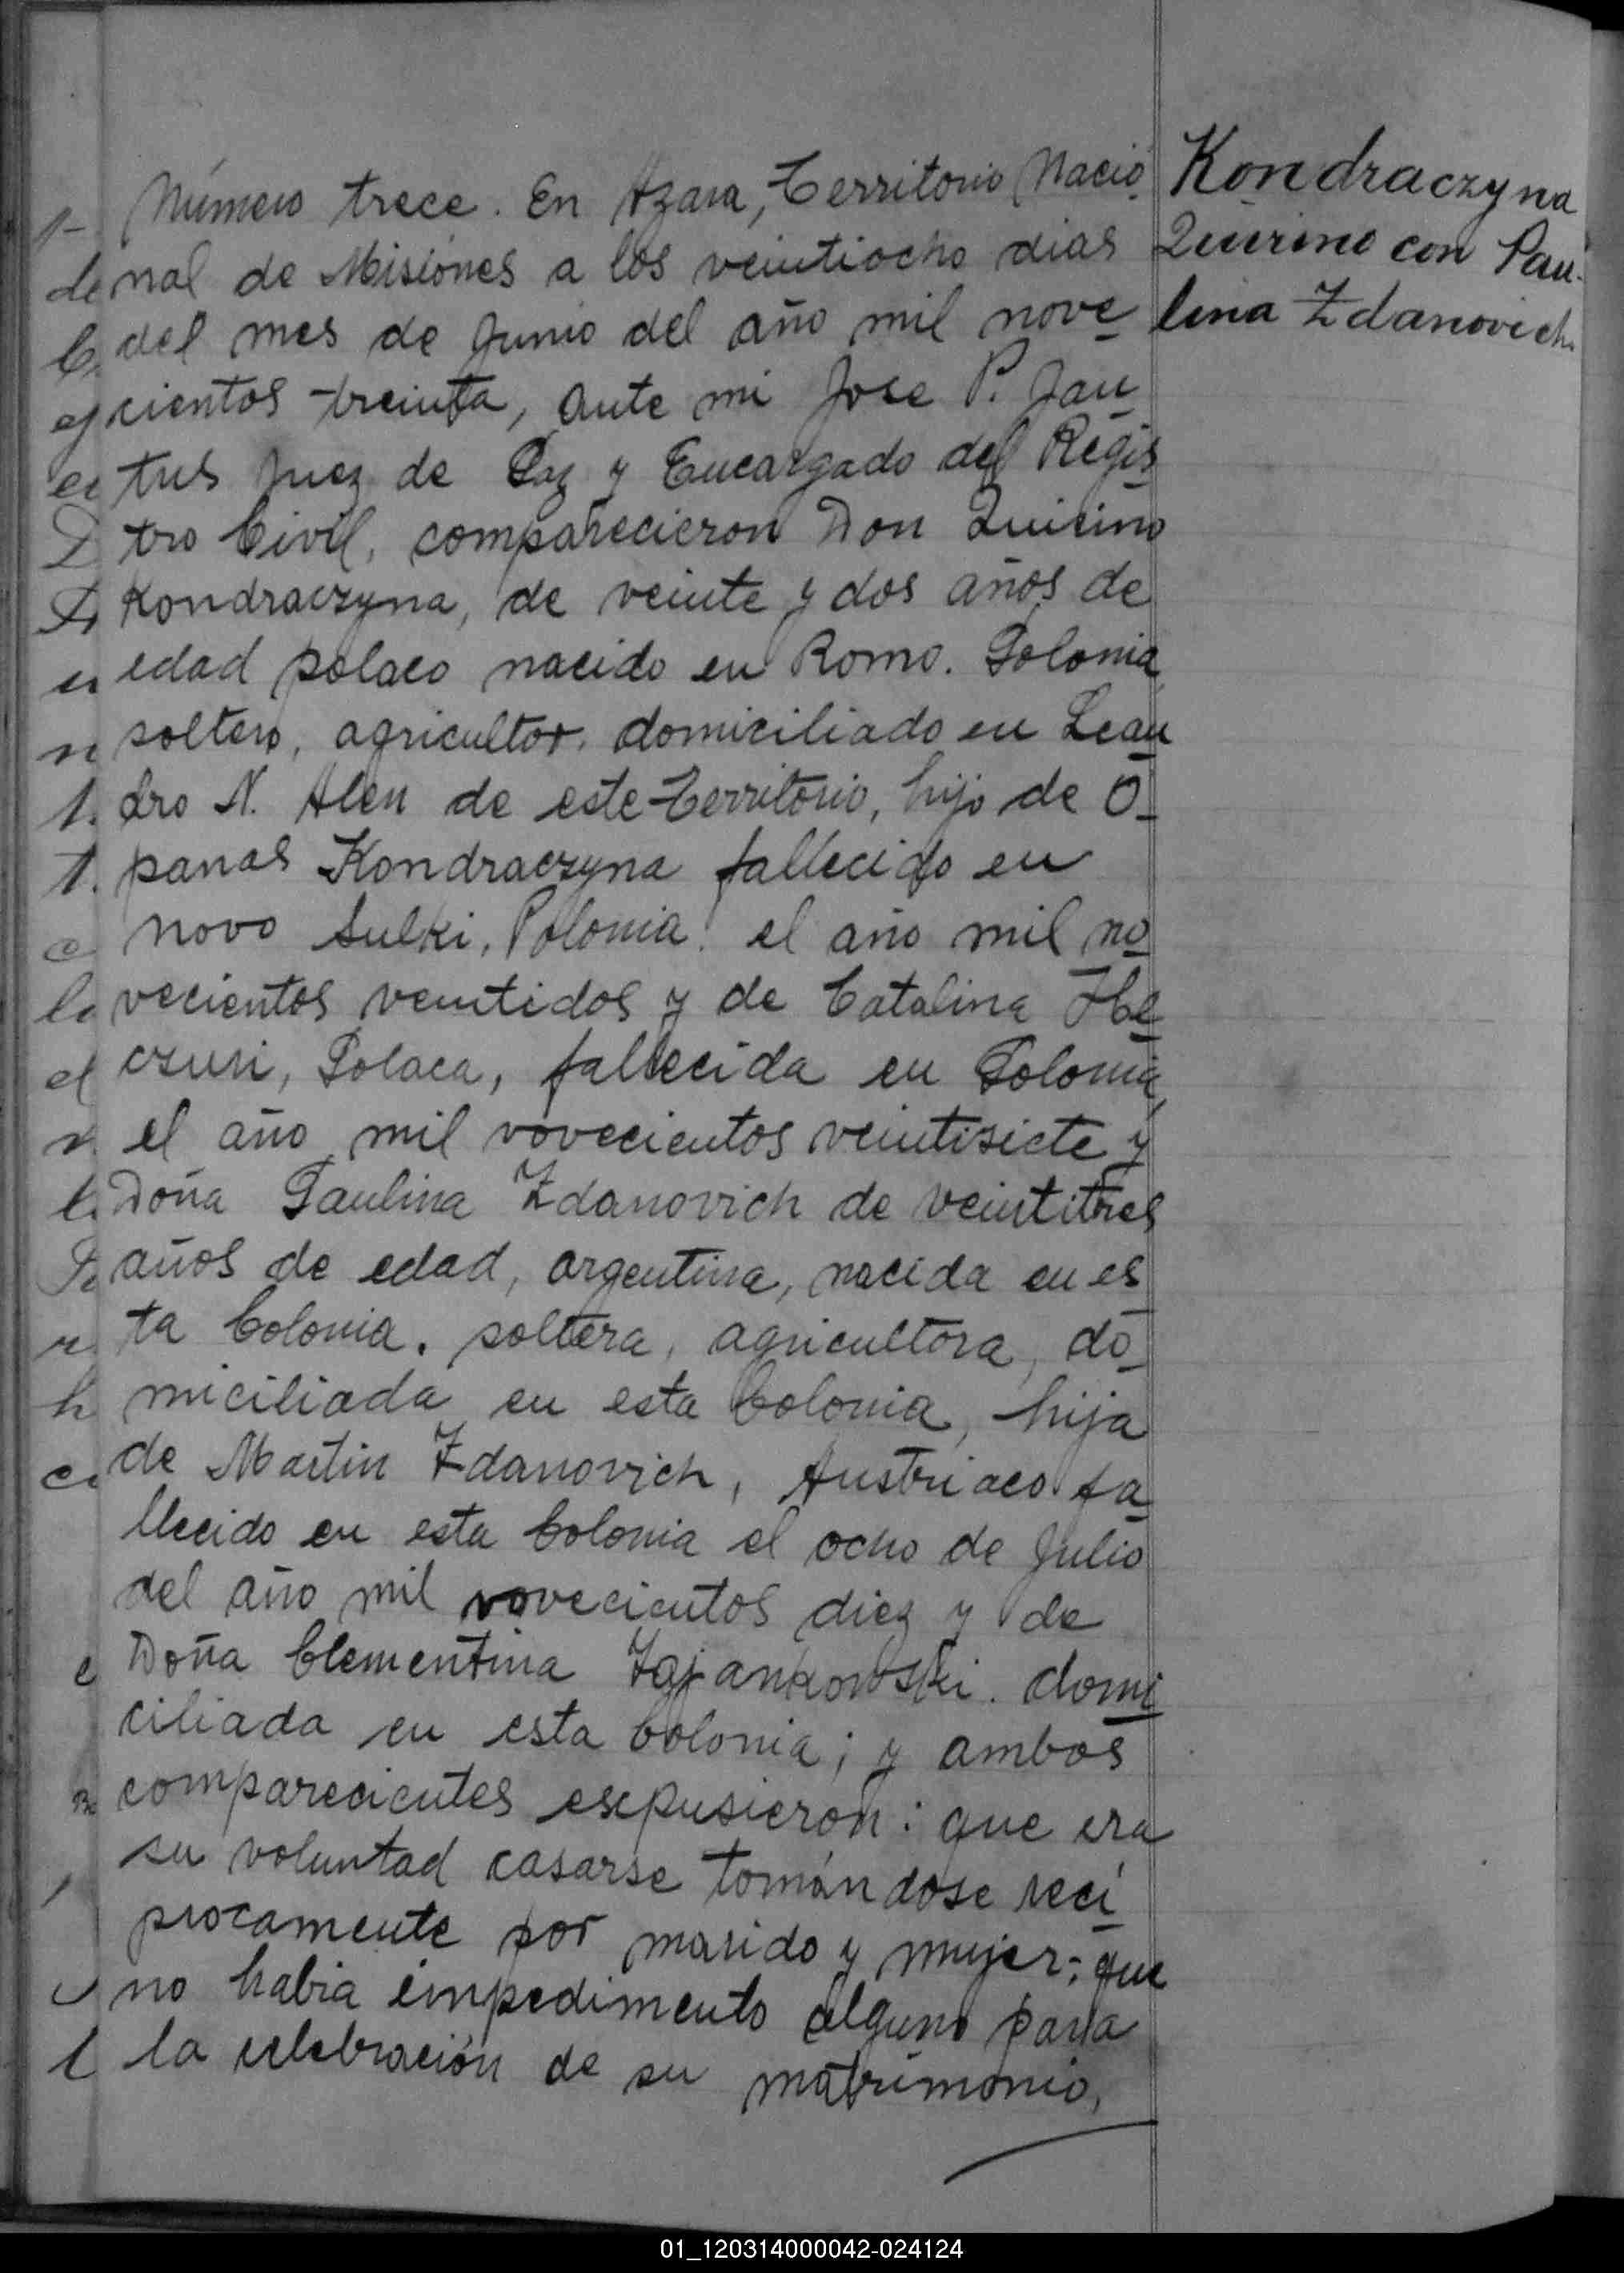 Kondraczyna
Quirino con Pau-
lina Zdanovich
Número trece. En Azara, Territorio Nacio
nal de Misiones a los veintiocho dias
del mes de Junio del año mil nove
cientos treinta, ante mi Jose P. Jan
tus Juez de Paz y Encargado del Regis
tro Civil, comparecieron Don Quirino
Kondraczyna, de veinte y dos años de
edad polaco nacido en Romo. Polonia,
soltero, agricultor, domiciliado en Lean
dro N. Alen de este Territorio, hijo de O-
panas Kondraczyna fallecido en
novo Sulki, Polonia, el año mil no
vecientos veintidos y de Catalina
czuri, Polaca, fallecida en Polonia,
el año mil novecientos veintisiete y
Doña Paulina Zdanovich de veintitres
años de edad, argentina, nacida en es
ta Colonia. soltera, agricultora, do-
miciliada en esta Colonia, hija
de Martin Zdanovich, Austriaco fa
llecido en esta Colonia el ocho de Julio
del año mil novecientos diez y de
Doña Clementina Zajankowski. domi
ciliada en esta Colonia; y ambos
comparecientes esepusieron: que era
su voluntad casarse tomándose reci
procamente por marido y mujer; que
no habia impedimento alguno para
la celebración de su matrimonio,
01_120314000042-024124